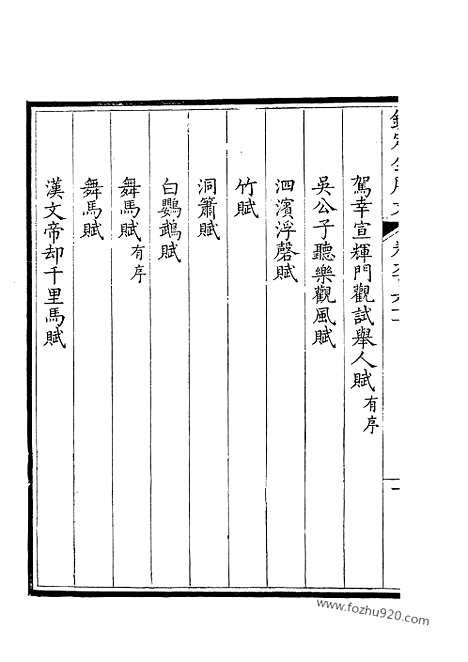 駕幸宣輝門觀試舉人賦有序
吳公子聽樂觀風賦
泗濱浮磬賦
竹賦
洞簫賦
白鸚鵡賦
舞馬賦有序
舞馬賦
漢文帝却千里馬賦
www.fozhu920.com